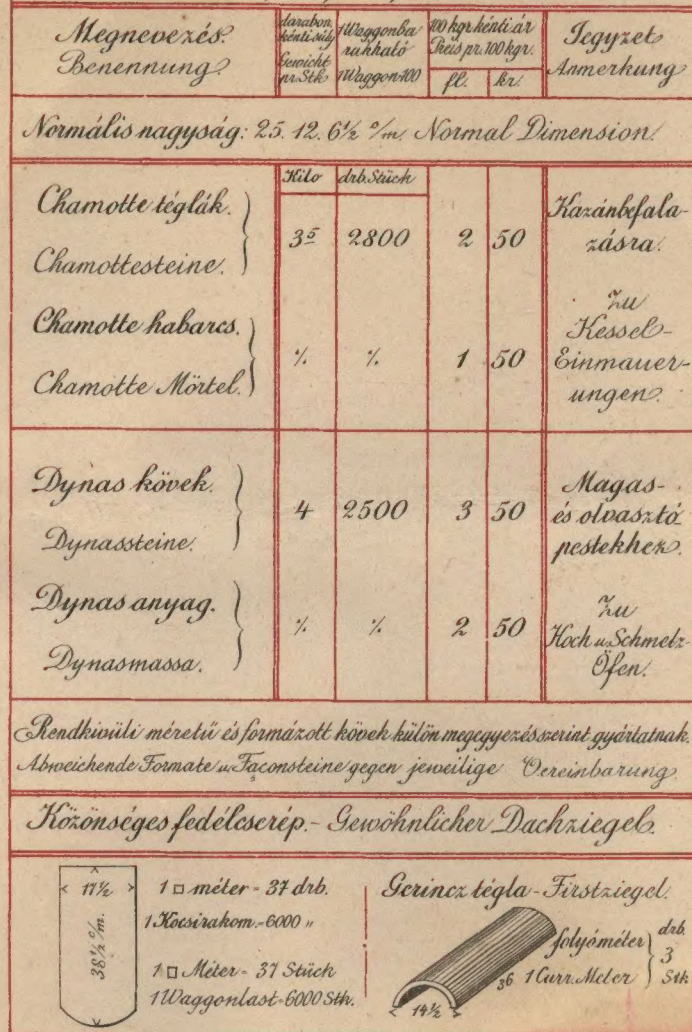 Megnevezés. Benennung.
darabon.kénti súly Gewicht pr. Stk.
1 Waggonba rakható 1 Waggon=100
100 kgr. kénti ár Preis pr. 100 kgr.
fl. kr.
Jegyzet Anmerkung
Normális nagyság: 25. 12. 6½ c/m. Normal Dimension.
Kilo drb. Stück
Chamotte téglák.
Chamottesteine.
3⁵ 2800 2 50
Kazánbefala-
zásra.
Chamotte habarcs.
Chamotte Mörtel.
% % 1 50
Zu
Kessel-
Einmauer-
ungen.
Dynas kövek.
Dynassteine.
4 2500 3 50
Magas-
és olvasztó
pestekhez.
Dynas anyag.
Dynasmassa.
% % 2 50
Zu
Hoch u. Schmelz-
Öfen.
Rendkivüli méretű és formázott kövek külön megegyezés szerint gyártatnak.
Abweichende Formate u. Façonsteine gegen jeweilige Vereinbarung.
Közönséges fedélcserép. - Gewöhnlicher Dachziegel.
17½
38½ c/m.
1 □ méter = 37 drb.
1 Kocsirakom. = 6000 "
1 □ Meter = 37 Stück
1 Waggonlast = 6000 Stk.
Gerincz tégla - Firstziegel.
folyóméter
1 Curr. Meter
drb.
3
Stk
36
14½